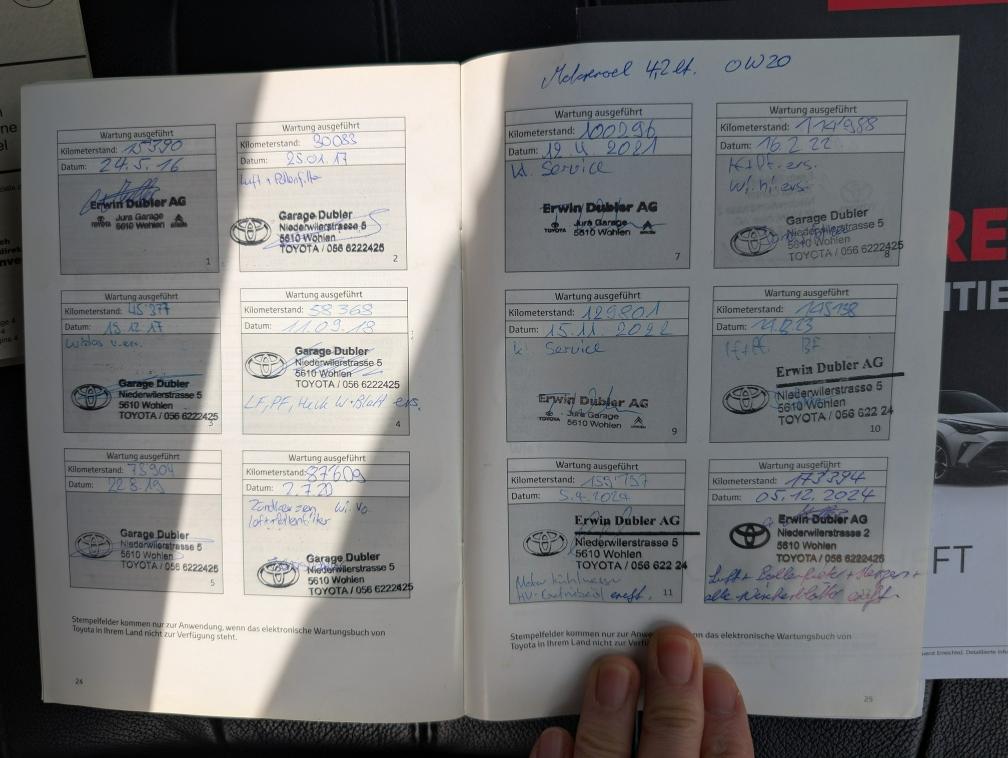 Motorenoel 4,2 lt. 0W20
Wartung ausgeführt
Kilometerstand: 15390
Datum: 24.5.16
Erwin Dubler AG
Jura Garage
5610 Wohlen
TOYOTA
1
Wartung ausgeführt
Kilometerstand: 30083
Datum: 25.01.17
Luft + Pollenfilter
Garage Dubler
Niederwilerstrasse 5
5610 Wohlen
TOYOTA / 056 6222425
2
Wartung ausgeführt
Kilometerstand: 45377
Datum: 15.12.17
Garage Dubler
Niederwilerstrasse 5
5610 Wohlen
TOYOTA / 056 6222425
3
Wartung ausgeführt
Kilometerstand: 58368
Datum: 11.09.18
Garage Dubler
Niederwilerstrasse 5
5610 Wohlen
TOYOTA / 056 6222425
LF, PF, Heck W-Blatt ers.
4
Wartung ausgeführt
Kilometerstand: 73904
Datum: 22.8.19
Garage Dubler
Niederwilerstrasse 5
5610 Wohlen
TOYOTA / 056 6222425
5
Wartung ausgeführt
Kilometerstand: 87609
Datum: 2.7.20
Zündkerzen Wi. Vo.
Luft + Pollenfilter
Garage Dubler
Niederwilerstrasse 5
5610 Wohlen
TOYOTA / 056 6222425
Stempelfelder kommen nur zur Anwendung, wenn das elektronische Wartungsbuch von
Toyota in Ihrem Land nicht zur Verfügung steht.
24
Wartung ausgeführt
Kilometerstand: 100296
Datum: 12.4.2021
kl. Service
Erwin Dubler AG
Jura Garage
TOYOTA 5610 Wohlen
7
Wartung ausgeführt
Kilometerstand: 114988
Datum: 16.2.22
Wi. hi. ers.
Garage Dubler
Niederwilerstrasse 5
5610 Wohlen
TOYOTA / 056 6222425
8
Wartung ausgeführt
Kilometerstand: 129801
Datum: 15.11.2022
kl. Service
Erwin Dubler AG
Jura Garage
TOYOTA 5610 Wohlen
9
Wartung ausgeführt
Kilometerstand: 145138
Datum:
BF
Erwin Dubler AG
Niederwilerstrasse 5
5610 Wohlen
TOYOTA / 056 622 24
10
Wartung ausgeführt
Kilometerstand: 159757
Datum: 5.4.2024
Erwin Dubler AG
Niederwilerstrasse 5
5610 Wohlen
TOYOTA / 056 622 24
Motor Kühlwasser
ersetzt.
11
Wartung ausgeführt
Kilometerstand: 173394
Datum: 05.12.2024
Erwin Dubler AG
Niederwilerstrasse 2
5610 Wohlen
TOYOTA / 056 6222425
Luft + Pollenfilter + Kerzen +
alle Wischerblätter ersetzt
Stempelfelder kommen nur zur Anwendung, wenn das elektronische Wartungsbuch von
Toyota in Ihrem Land nicht zur
25
RE
TIE
FT